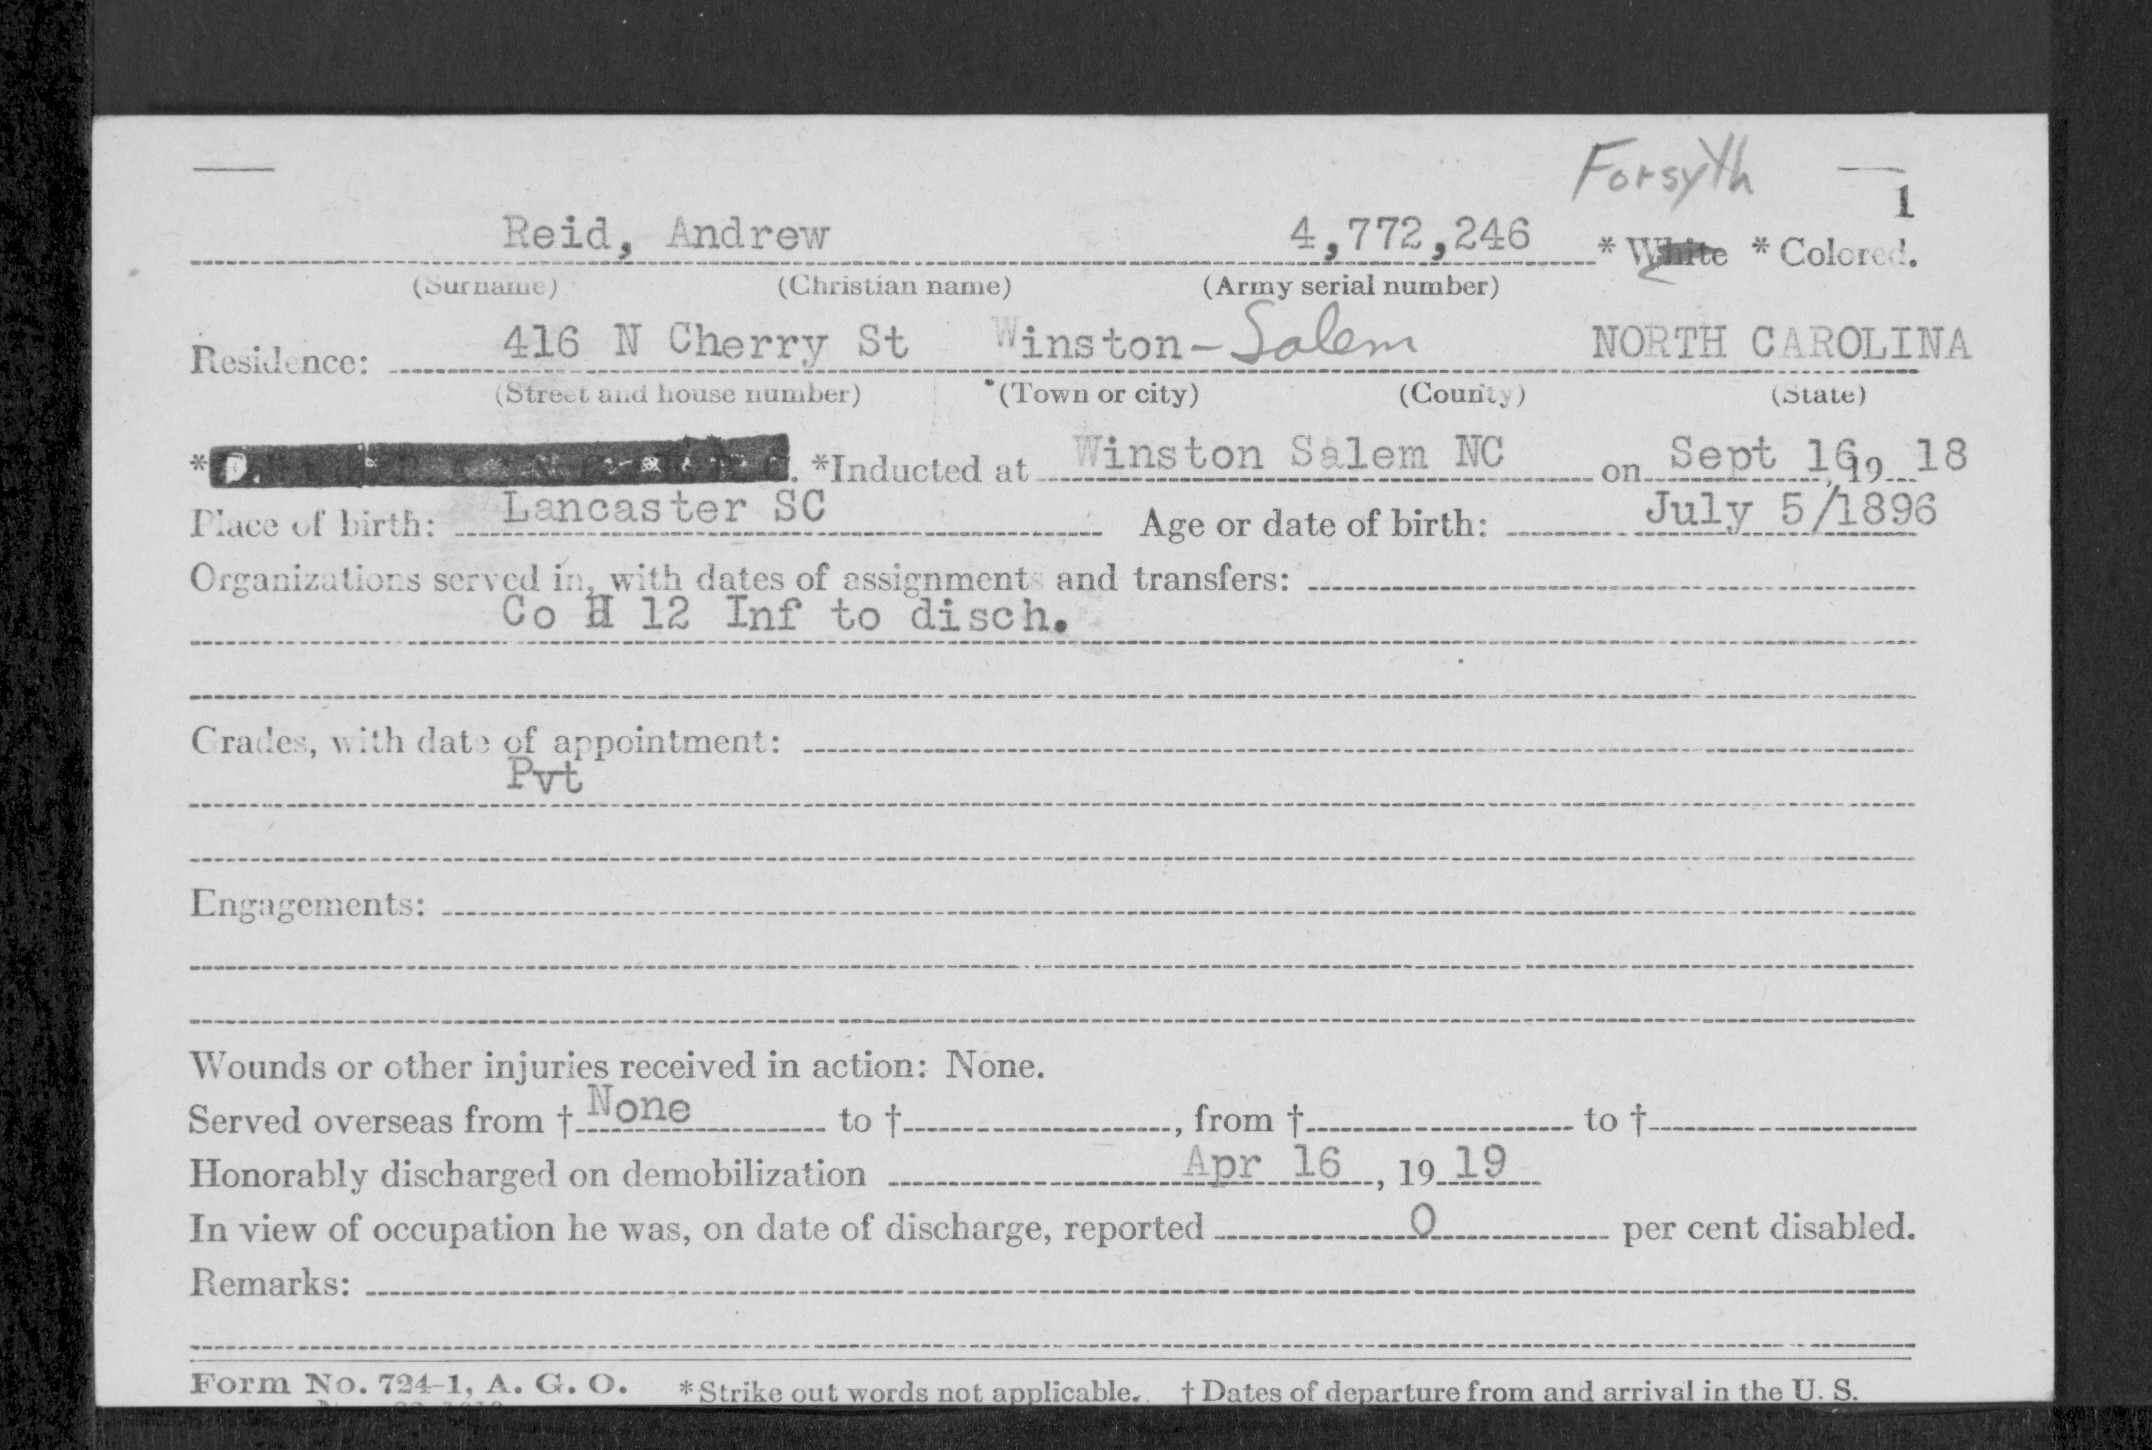 Forsyth
1
Reid, Andrew 4,772,246 * White * Colored.
(Surname) (Christian name) (Army serial number)
Residence: 416 N Cherry St Winston-Salem NORTH CAROLINA
(Street and house number) (Town or city) (County) (State)
* *Inducted at Winston Salem NC on Sept 16, 19 18
Place of birth: Lancaster SC Age or date of birth: July 5/1896
Organizations served in, with dates of assignments and transfers:
Co H 12 Inf to disch.
Grades, with date of appointment:
Pvt
Engagements:
Wounds or other injuries received in action: None.
Served overseas from † None to †, from † to †
Honorably discharged on demobilization Apr 16, 19 19
In view of occupation he was, on date of discharge, reported 0 per cent disabled.
Remarks:
Form No. 724-1, A. G. O. *Strike out words not applicable. † Dates of departure from and arrival in the U. S.